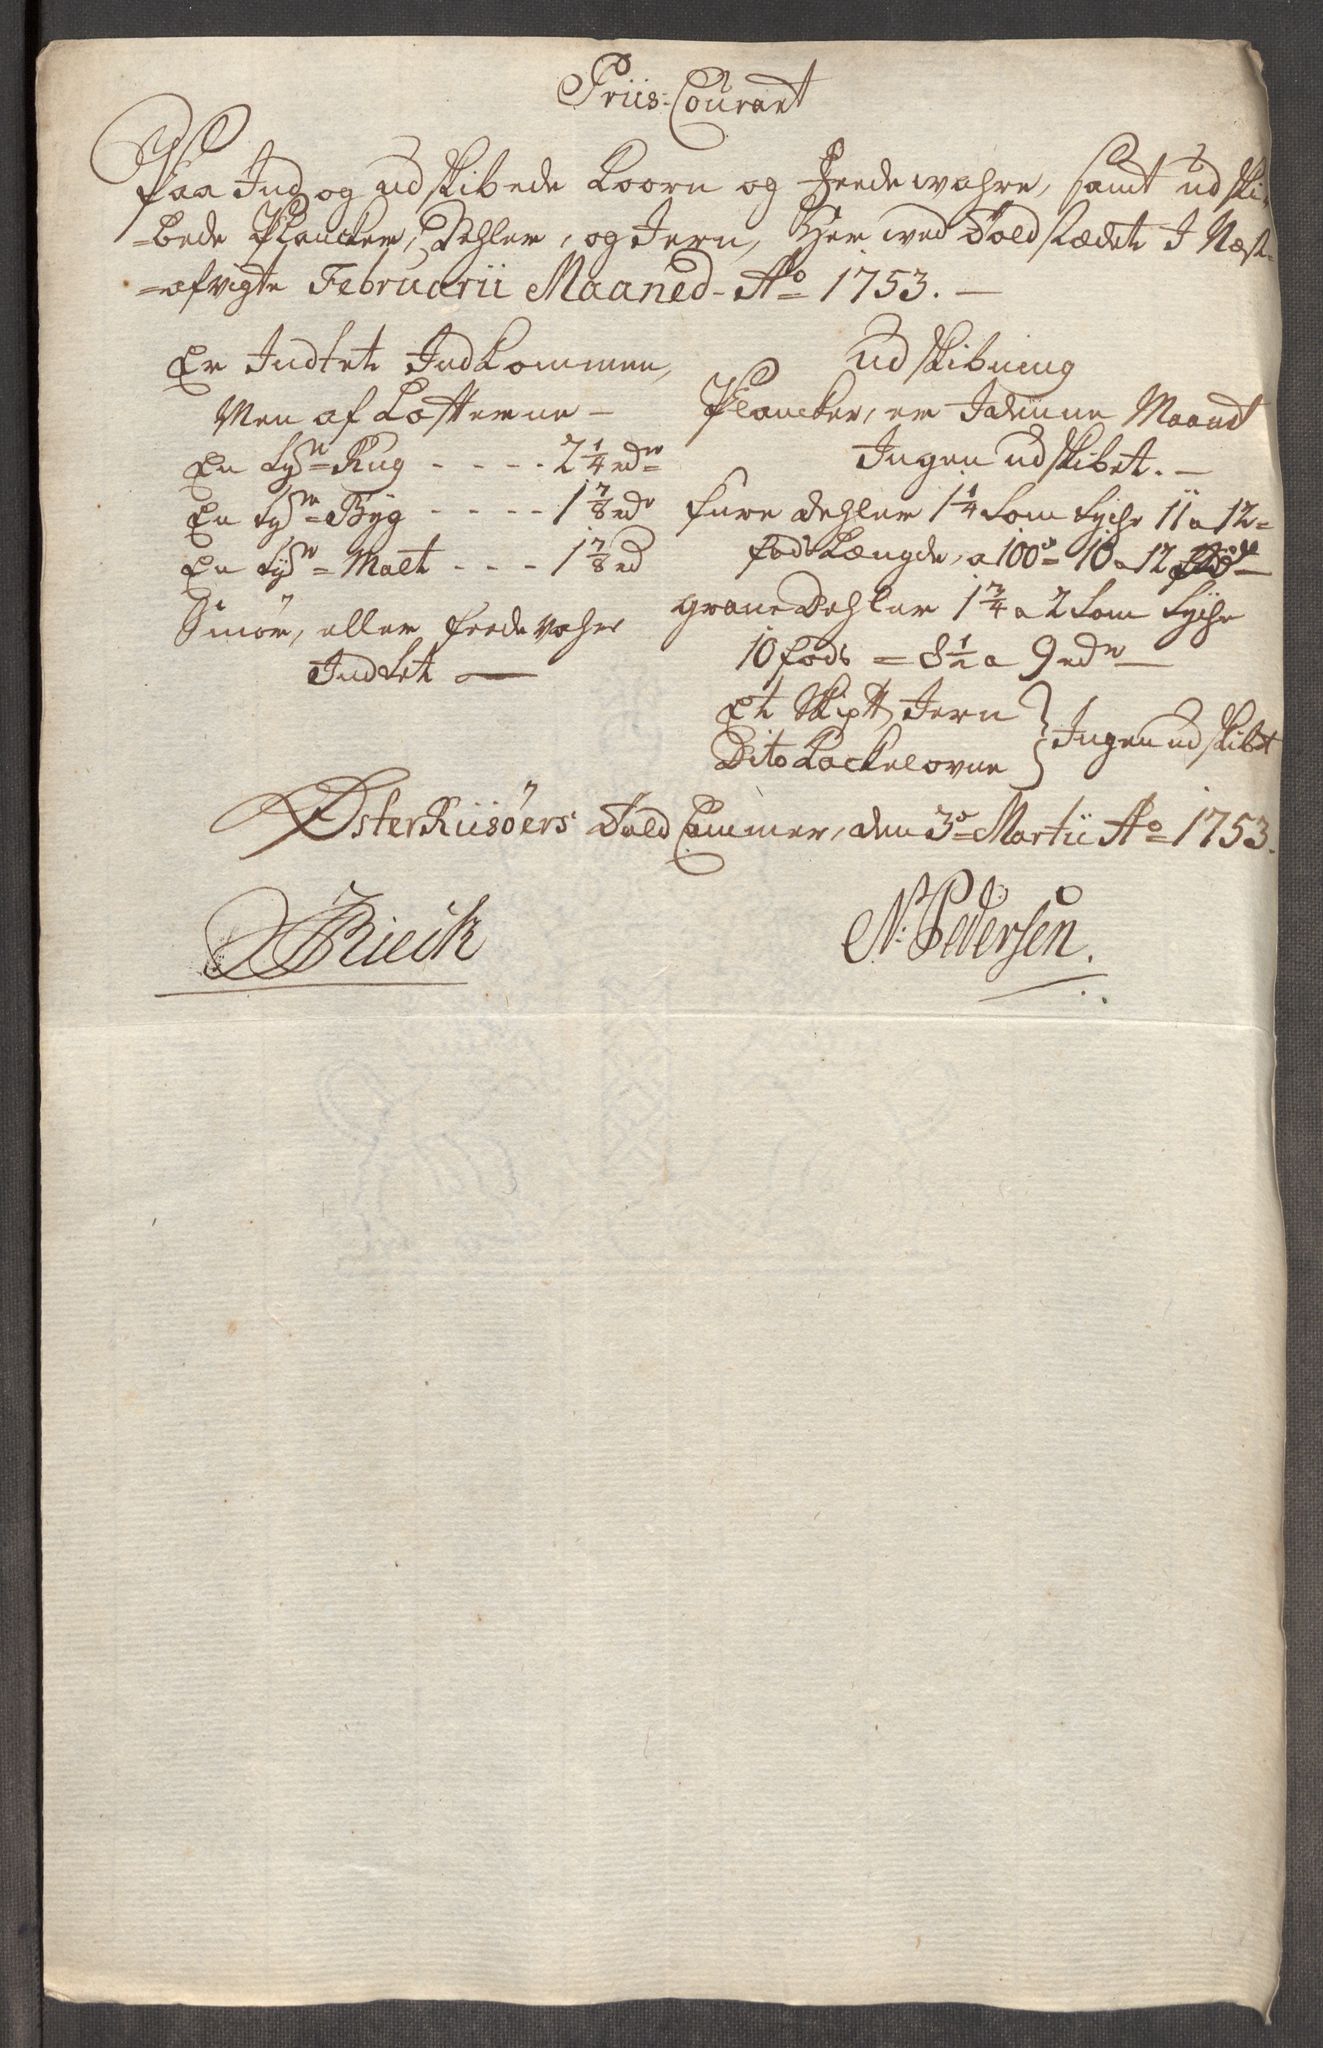 Priis-Courant
Paa Ind og udskibede Koorn og Feedewahre, samt udski-
-bede Plancker, Dehler, og Jern, Her wed Toldstædet I Næst-
-afvigte Februarii Maaned Ao 1753. —
Er Indtet Indkommen,
Men af Kosterne —
En Tde Rug - - - - 2 1/4 rdr
En Tde Byg - - - - 1 7/8 rdr
En Tde Malt - - - 1 7/8 rd
Smör, eller feedevahre
Indtet —
Udskibning
Plancker, er I denne Maanet
Ingen udskibet. —
furre Dehler 1 1/4 Tom tyche 11 a 12
fods Længde, a 100de 10 a 12 —
grane Dehler 1 3/4 a 2 Tom tyche
10 fods = 8 1/2 a 9 rdr —
Et Skiptt Jern } Ingen udskibt
Dito Kackelovne
Øster Riisöers Told Cammer, den 3o Martii Ao 1753.
Rieck
N: Pedersen.